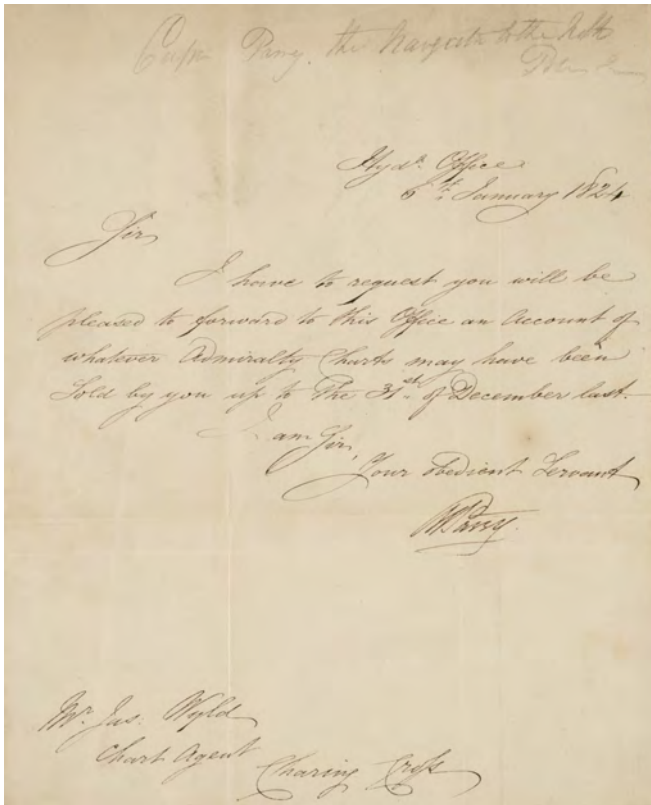 Capn Parry, the Navigator to the North
Hydl. Office
6th. January 1824
Sir
I have to request you will be
pleased to forward to this Office an Account of
whatever Admiralty Charts may have been
Sold by you up to the 31st. of December last.
I am Sir,
Your Obedient Servant
WEParry.
Mr. Jas: Wyld
Chart Agent
Charing Cross